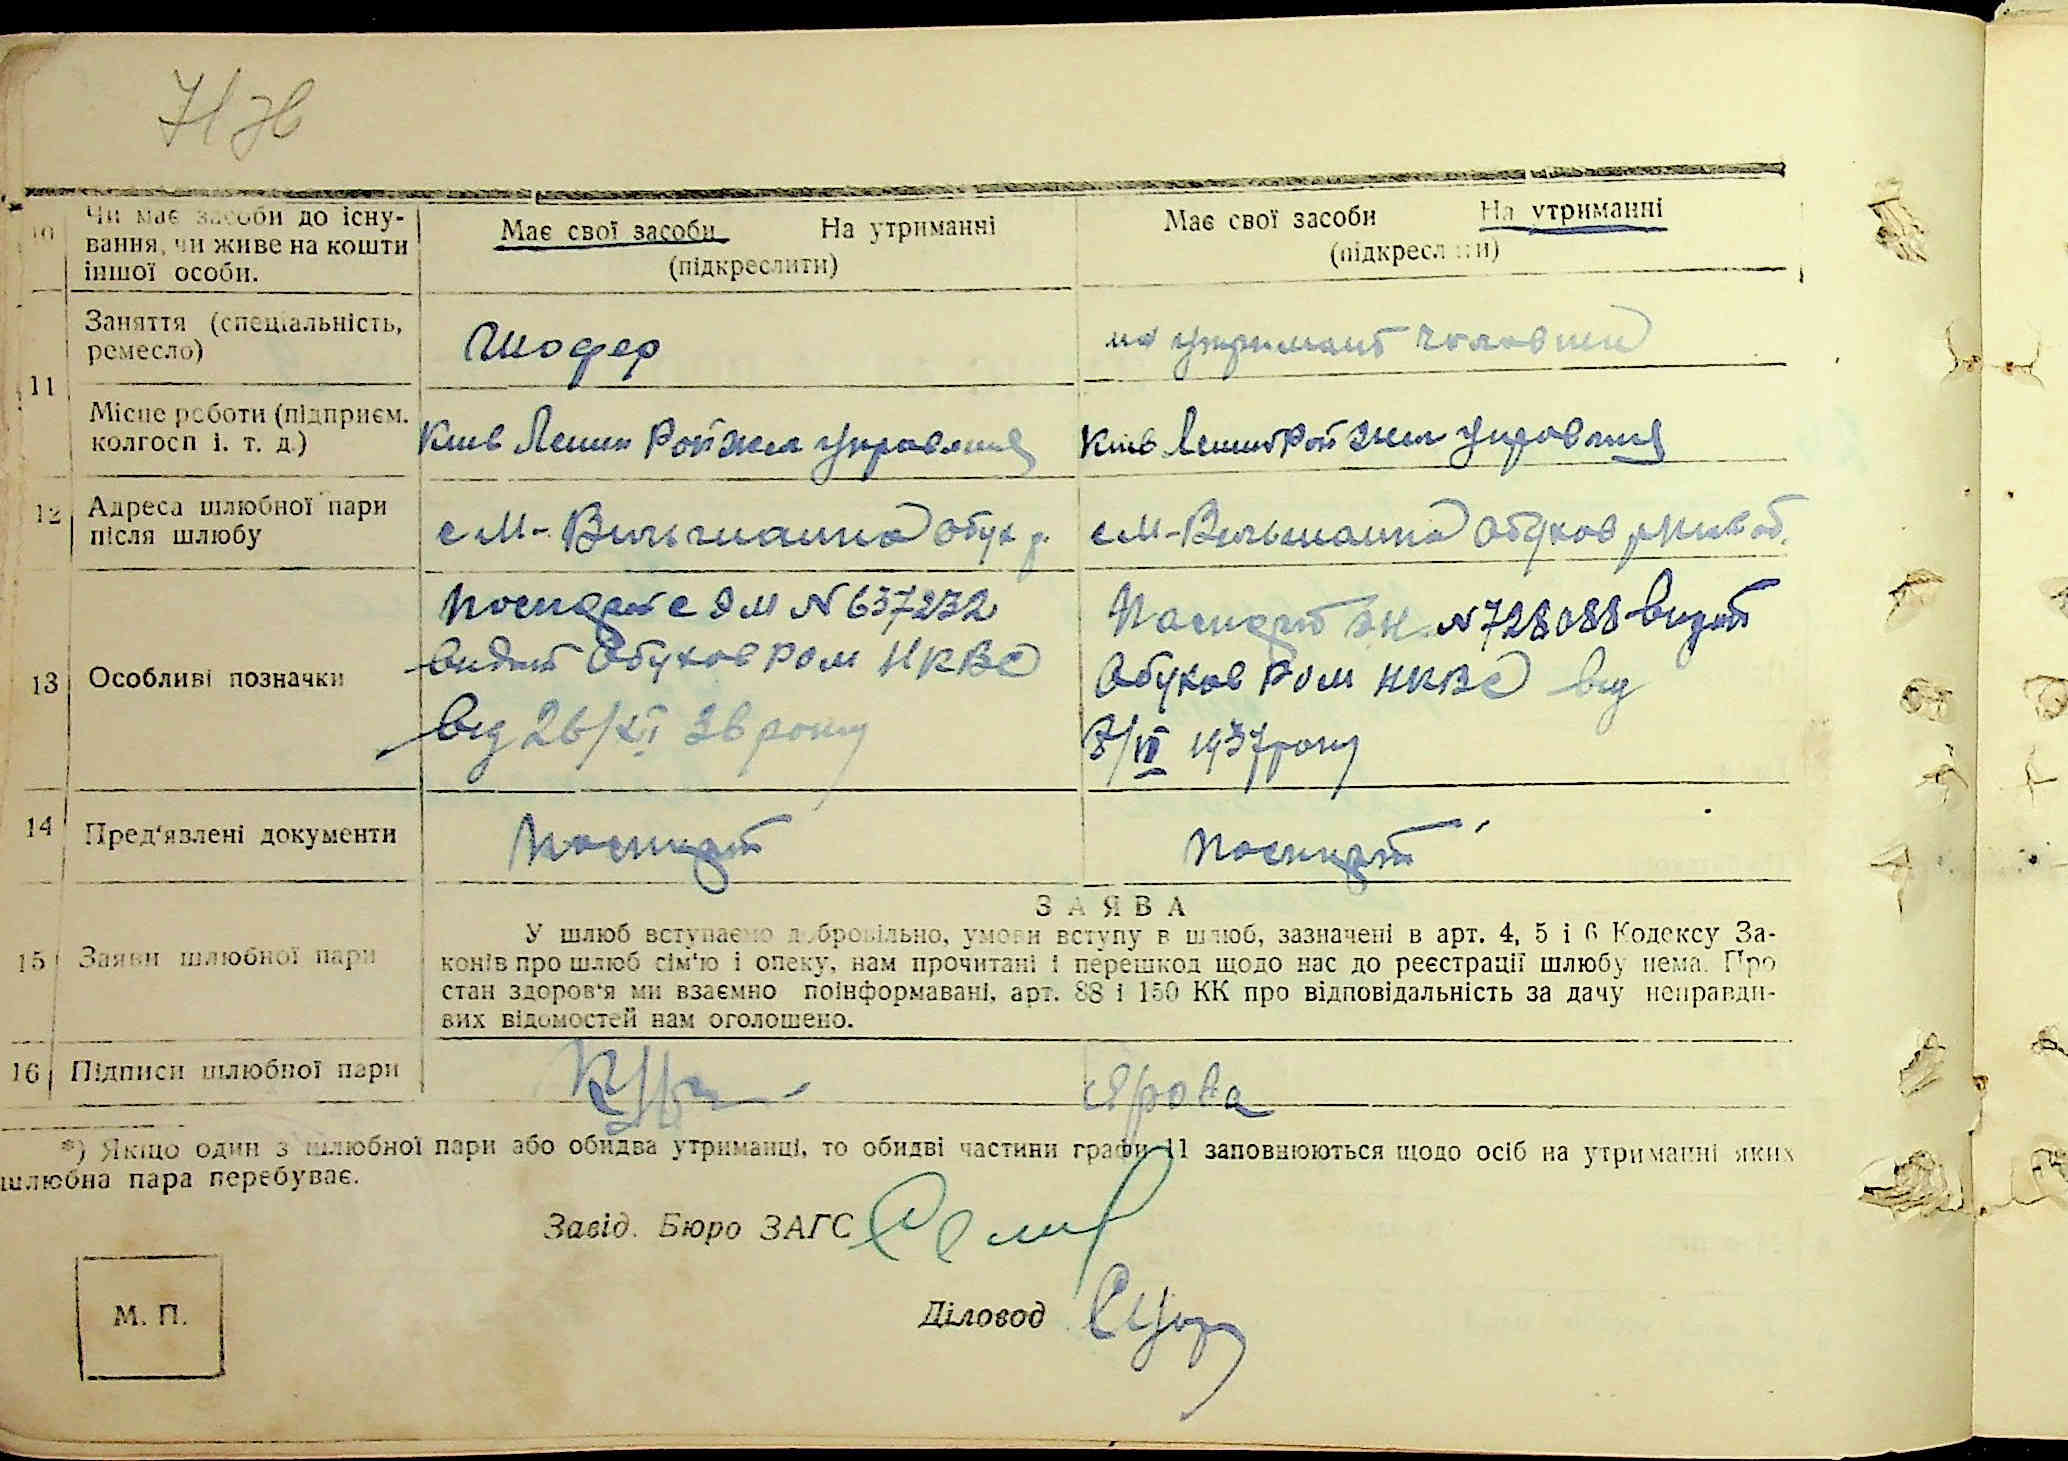 10 Чи має засоби до існу-
вання, чи живе на кошти
іншої особи.
Має свої засоби На утриманні
(підкреслити)
Має свої засоби На утриманні
(підкреслити)
11
Заняття (спеціальність,
ремесло)
Шофер
на утримані чоловіка
Місце роботи (підприєм.
колгосп і. т. д.)
Київ Ленин Рай Жил управління
Київ Ленин Рай Жил управління
12 Адреса шлюбної пари
після шлюбу
с М-Вільшанка Обух р.
с М-Вільшанка Обухов р Київ об.
13 Особливі позначки
Паспорт с ЭМ № 637232
видан Обухов РОМ НКВС
від 26/XI 36 року
Паспорт № 728088 видан
Обухов РОМ НКВС від
8/VII 1937 року
14 Пред'явлені документи
Паспорт
Паспорт
15 Заяви шлюбної пари
ЗАЯВА
У шлюб вступаємо добровільно, умови вступу в шлюб, зазначені в арт. 4, 5 і 6 Кодексу За-
конів про шлюб сім'ю і опеку, нам прочитані і перешкод щодо нас до реєстрації шлюбу нема. Про
стан здоров'я ми взаємно поінформавані, арт. 88 і 150 КК про відповідальність за дачу неправди-
вих відомостей нам оголошено.
16 Підписи шлюбної пари
Ярова
*) Якщо один з шлюбної пари або обидва утриманці, то обидві частини графи 11 заповнюються щодо осіб на утриманні яких
шлюбна пара перебуває.
Завід. Бюро ЗАГС
Діловод
М. П.